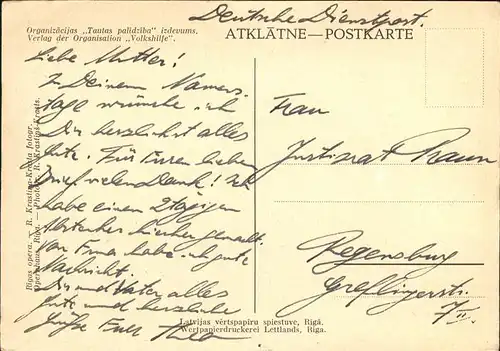 Deutsche Dienstpost.
Organizācijas „Tautas palīdzība" izdevums.
Verlag der Organisation „Volkshilfe".
ATKLĀTNE—POSTKARTE
Liebe Mutter!
Zu Deinem Namens-
tage wünsche ich
Dir herzlichst alles
Gute. Für Euren lieben
Brief vielen Dank! Ich
habe einen 2tägigen
Abstecher hierher gemacht.
Von habe ich gute
Nachricht.
Dir und Vater alles
Gute und herzliche
Grüße Euer
Frau
Justizrat
Regensburg
Greflingerstr.
7 II.
Rīgas opera. — R. Krastiņa-Kroata fotogr.
Opernhaus, Riga. — Photogr. R. Krastiņš-Kroats.
Latvijas vērtspapīru spiestuve, Rīgā.
Wertpapierdruckerei Lettlands, Riga.